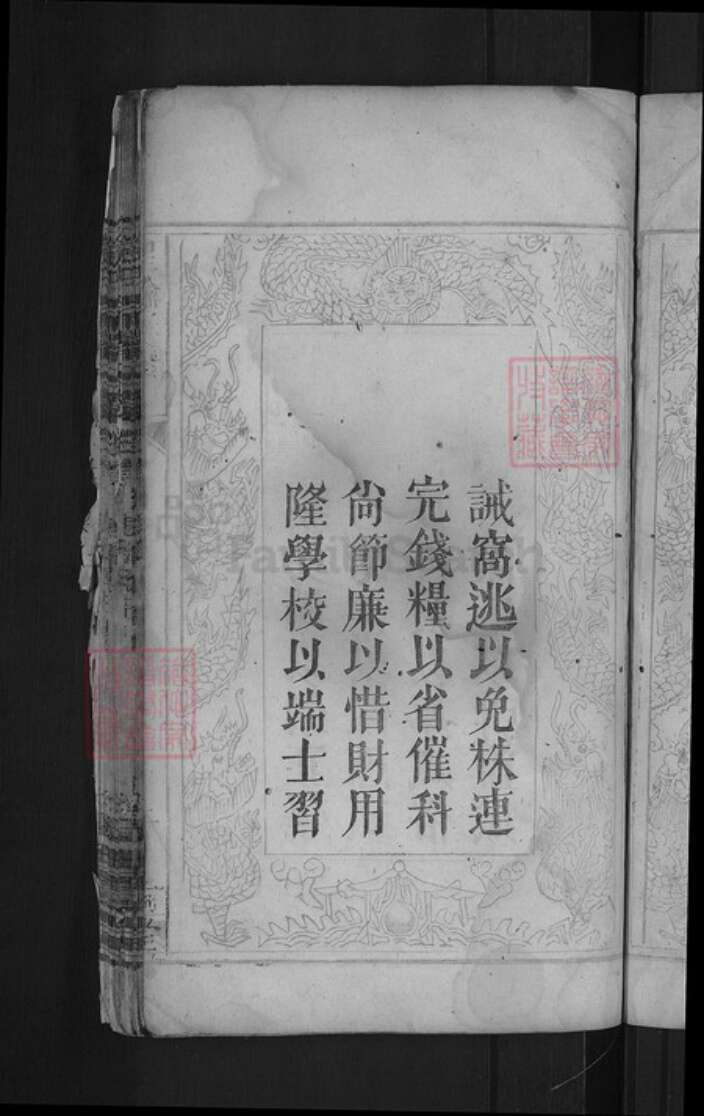 誡窩逃以免株連
完錢糧以省催科
尙節廉以惜財用
隆學校以端士習